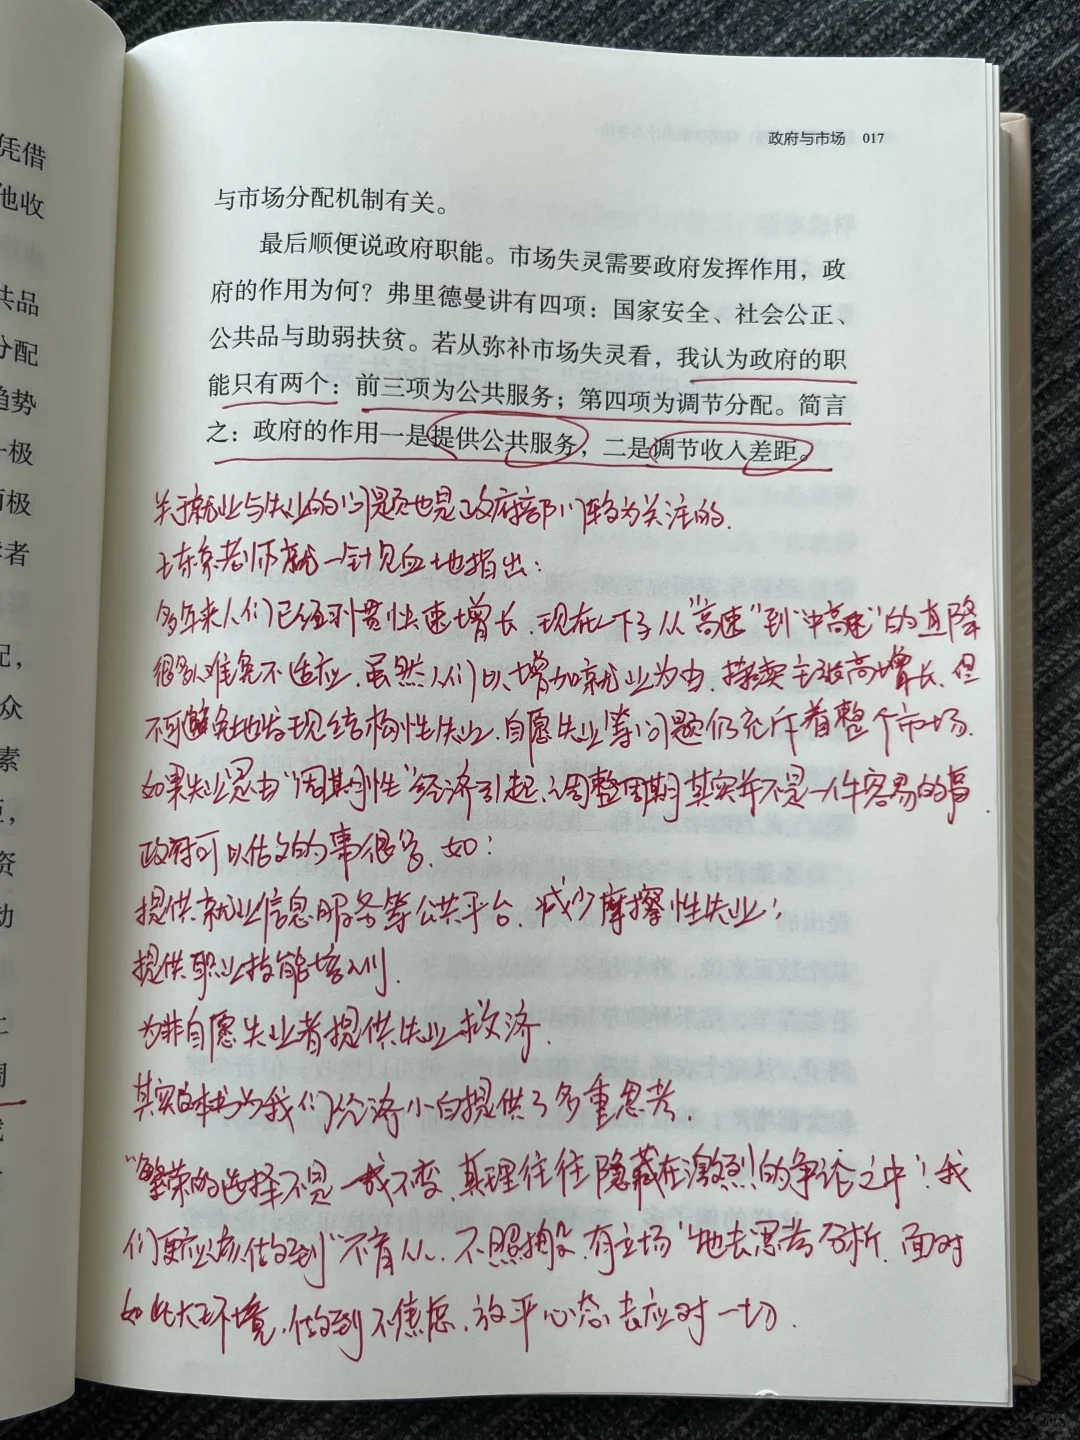 凭借
他收
共品
分配
趋势
一极
两极
者
配，
众
素
资
动
政府与市场 017
与市场分配机制有关。
最后顺便说政府职能。市场失灵需要政府发挥作用，政
府的作用为何？弗里德曼讲有四项：国家安全、社会公正、
公共品与助弱扶贫。若从弥补市场失灵看，我认为政府的职
能只有两个：前三项为公共服务；第四项为调节分配。简言
之：政府的作用一是提供公共服务，二是调节收入差距。
关于就业与失业的问题也是政府部门较为关注的.
王东京老师就一针见血地指出：
多年来人们已经习惯快速增长，现在一下子从“高速”到“中高速”的直降
很多人难免不适应.虽然人们以增加就业为由，持续主张高增长，但
不可避免地发现结构性失业，自愿失业等问题仍充斥着整个市场.
如果失业是由“周期性”经济引起，调整周期其实并不是一件容易的事.
政府可以做的事很多，如：
提供就业信息服务等公共平台，减少摩擦性失业；
提供职业技能培训.
为非自愿失业者提供失业救济.
其实这本书为我们经济小白提供了多重思考.
“繁荣的选择不是一成不变，真理往往隐藏在激烈的争论之中”！我
们更应该做到“不盲从、不照搬、有立场”地去思考分析，面对
如此大环境，做到不焦虑，放平心态去应对一切.